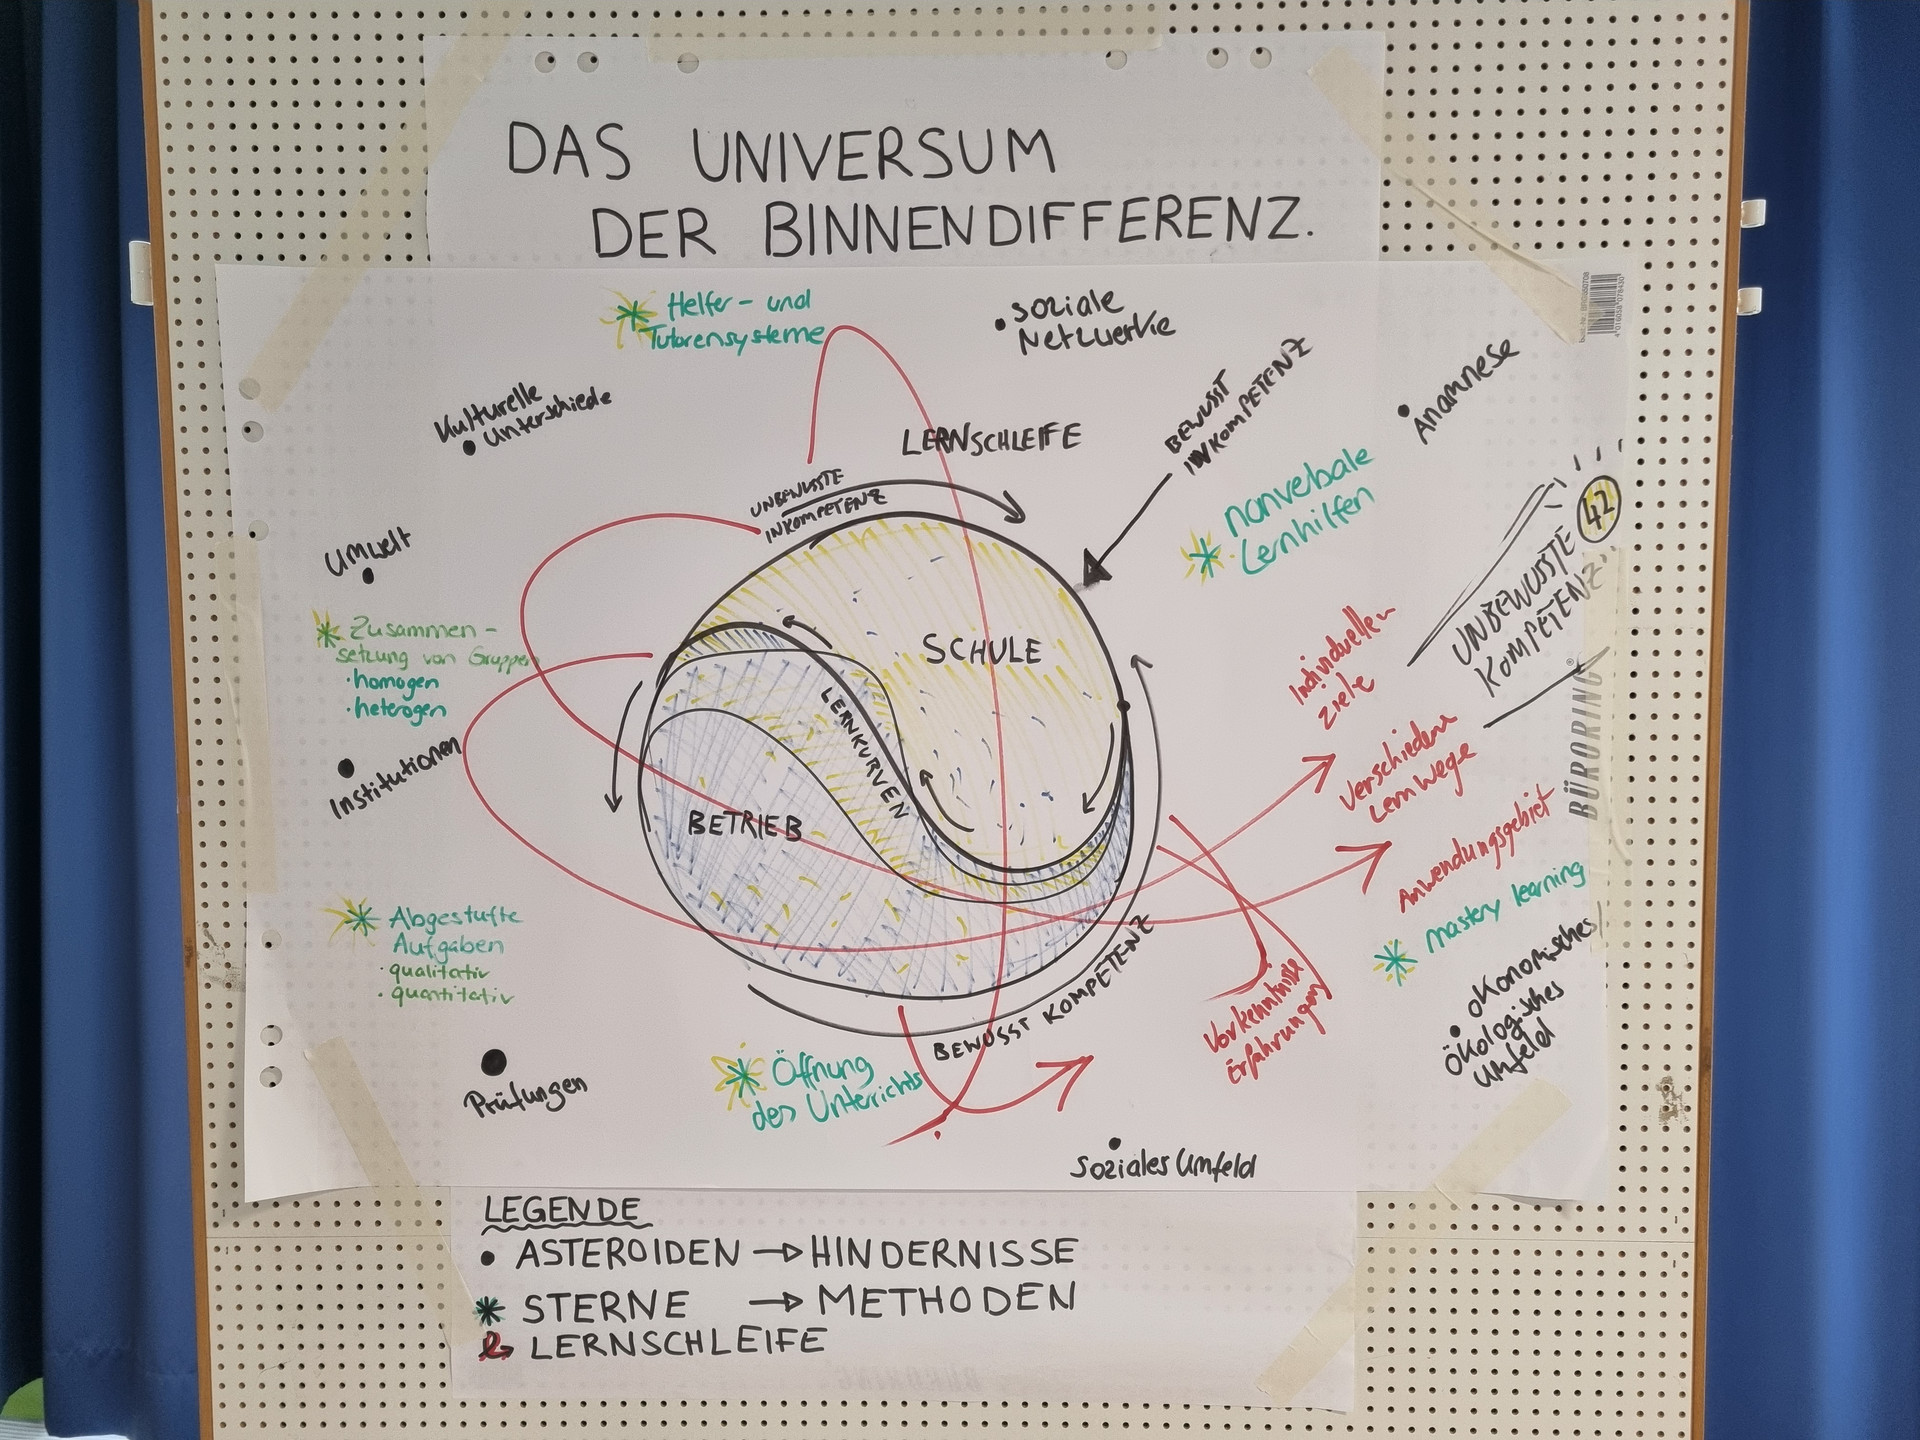 DAS UNIVERSUM
DER BINNENDIFFERENZ.
Helfer- und
Tutorensysteme
soziale
Netzwerke
Kulturelle
Unterschiede
LERNSCHLEIFE
BEWUSST
INKOMPETENZ
Anamnese
UNBEWUSSTE
INKOMPETENZ
nonverbale
Lernhilfen
42
UNBEWUSSTE
KOMPETENZ
Umwelt
Zusammen-
setzung von Gruppen
·homogen
·heterogen
SCHULE
Individuellen
Ziele
BÜRORING
Institutionen
LERNKURVEN
BETRIEB
Verschiedene
Lernwege
Anwendungsgebiet
mastery learning
Abgestufte
Aufgaben
· qualitativ
· quantitativ
ökonomisches/
ökologisches
Umfeld
BEWUSST KOMPETENZ
Vorkenntnisse
Erfahrungen
Prüfungen
Öffnung
des Unterrichts
soziales Umfeld
LEGENDE
• ASTEROIDEN → HINDERNISSE
STERNE → METHODEN
LERNSCHLEIFE